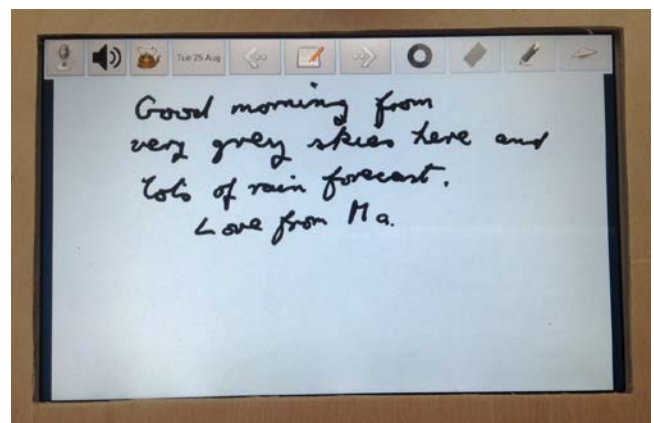 Tue 25 Aug
Good morning from
very grey skies here and
lots of rain forecast.
Love from Ma.